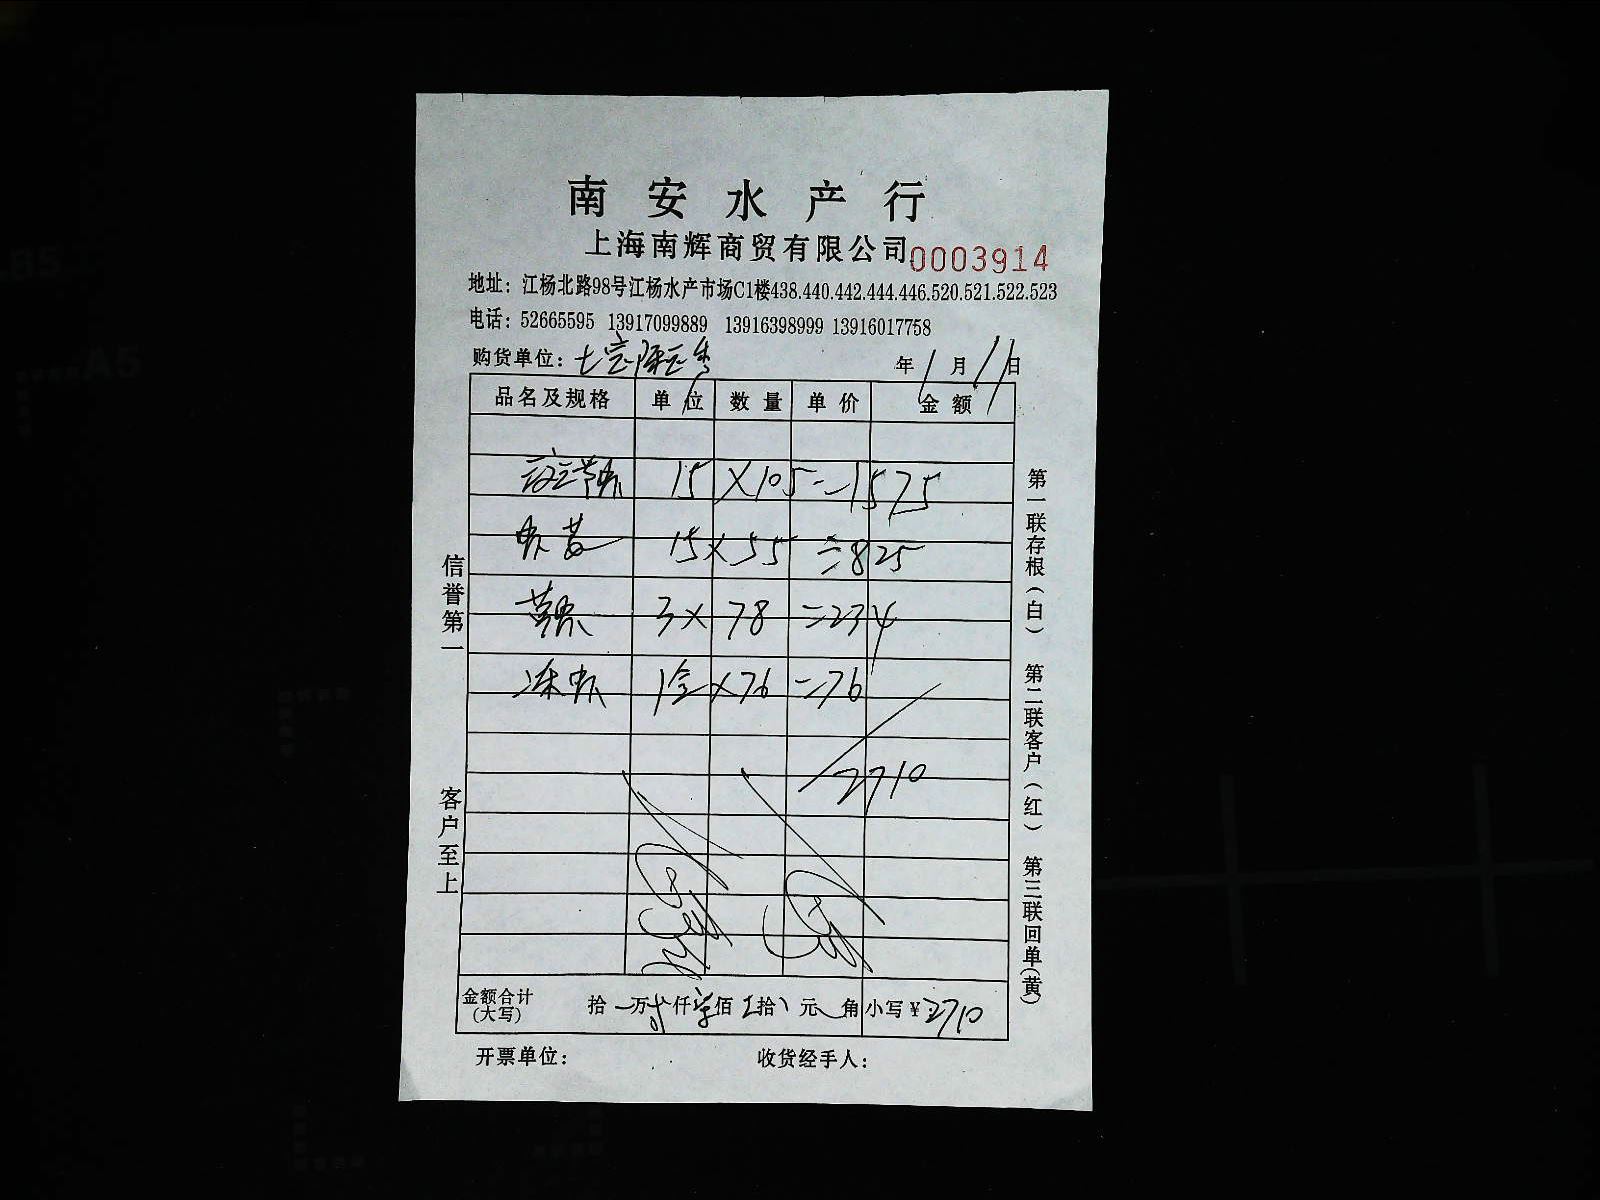 南安水产行
上海南辉商贸有限公司 0003914
地址：江杨北路98号江杨水产市场C1楼438.440.442.444.446.520.521.522.523
电话：52665595 13917099889 13916398999 13916017758
购货单位：七宝 年 1 月 11 日
品名及规格 单位 数量 单价 金额
15 X 105 = 1575
15 x 55 = 825
3 x 78 = 234
冻虾 1盒 x 76 = 76
2710
金额合计(大写) 拾 万 仟 佰 拾 元 角 小写￥2710
开票单位： 收货经手人：
信誉第一 客户至上
第一联存根(白) 第二联客户(红) 第三联回单(黄)